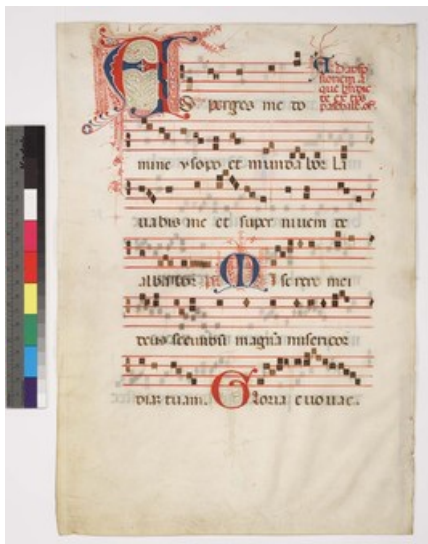 A
Sperges me do
mine ysopo et mundabor La
uabis me et super niuem de
albabor ps Miserere mei
deus secundum magna misericor
diaz tuam. Gloria euouae.
Ad aspersionem
aque
paschale